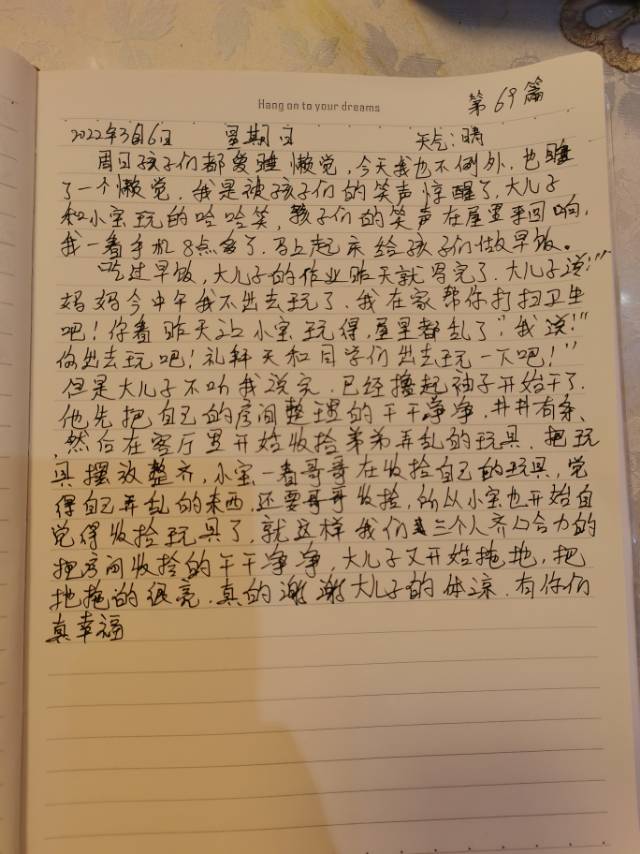 Hang on to your dreams
第69篇
2022年3月6日 星期日 天气:晴
周日孩子们都爱睡懒觉,今天我也不例外,也睡
了一个懒觉.我是被孩子们的笑声惊醒了,大儿子
和小宝玩的哈哈笑,孩子们的笑声在屋里来回响,
我一看手机8点多了.马上起床给孩子们做早饭。
吃过早饭,大儿子的作业昨天就写完了.大儿子说:"
妈妈今中午我不出去玩了.我在家帮你打扫卫生
吧!你看昨天让小宝玩得,屋里都乱了"我说:"
你出去玩吧!礼轩天和同学们出去玩一下吧!"
但是大儿子不听我说完.已经撸起袖子开始干了.
他先把自己的房间整理的干干净净,井井有条、
然后在客厅里开始收拾弟弟弄乱的玩具.把玩
具摆放整齐,小宝一看哥哥在收拾自己的玩具,觉
得自己弄乱的东西.还要哥哥收拾,所以小宝也开始自
觉得收拾玩具了,就这样我们三个人齐心合力的
把房间收拾的干干净净,大儿子又开始拖地,把
地拖的很亮.真的谢谢大儿子的体谅.有你们
真幸福